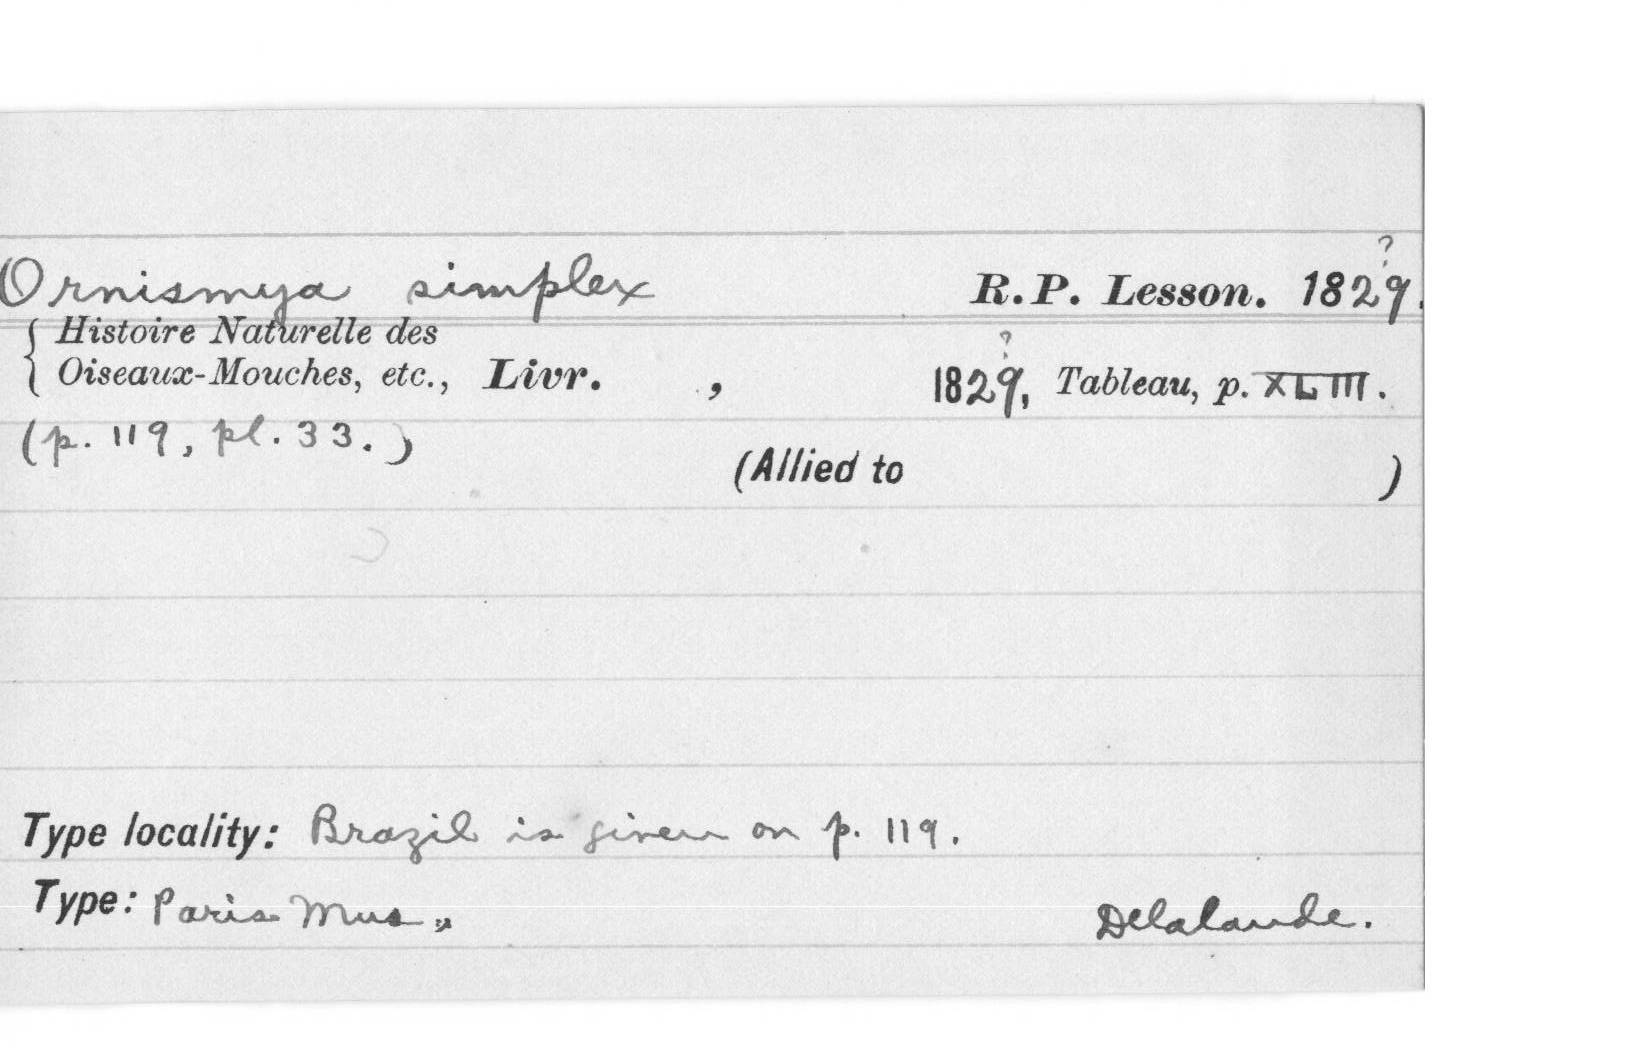 Ornismya simplex R.P. Lesson. 1829?.
{ Histoire Naturelle des
Oiseaux-Mouches, etc., Livr. , 1829?, Tableau, p. XLIII.
(p. 119, pl. 33.)
(Allied to )
Type locality: Brazil is given on p. 119.
Type: Paris Mus.,
Delalande.